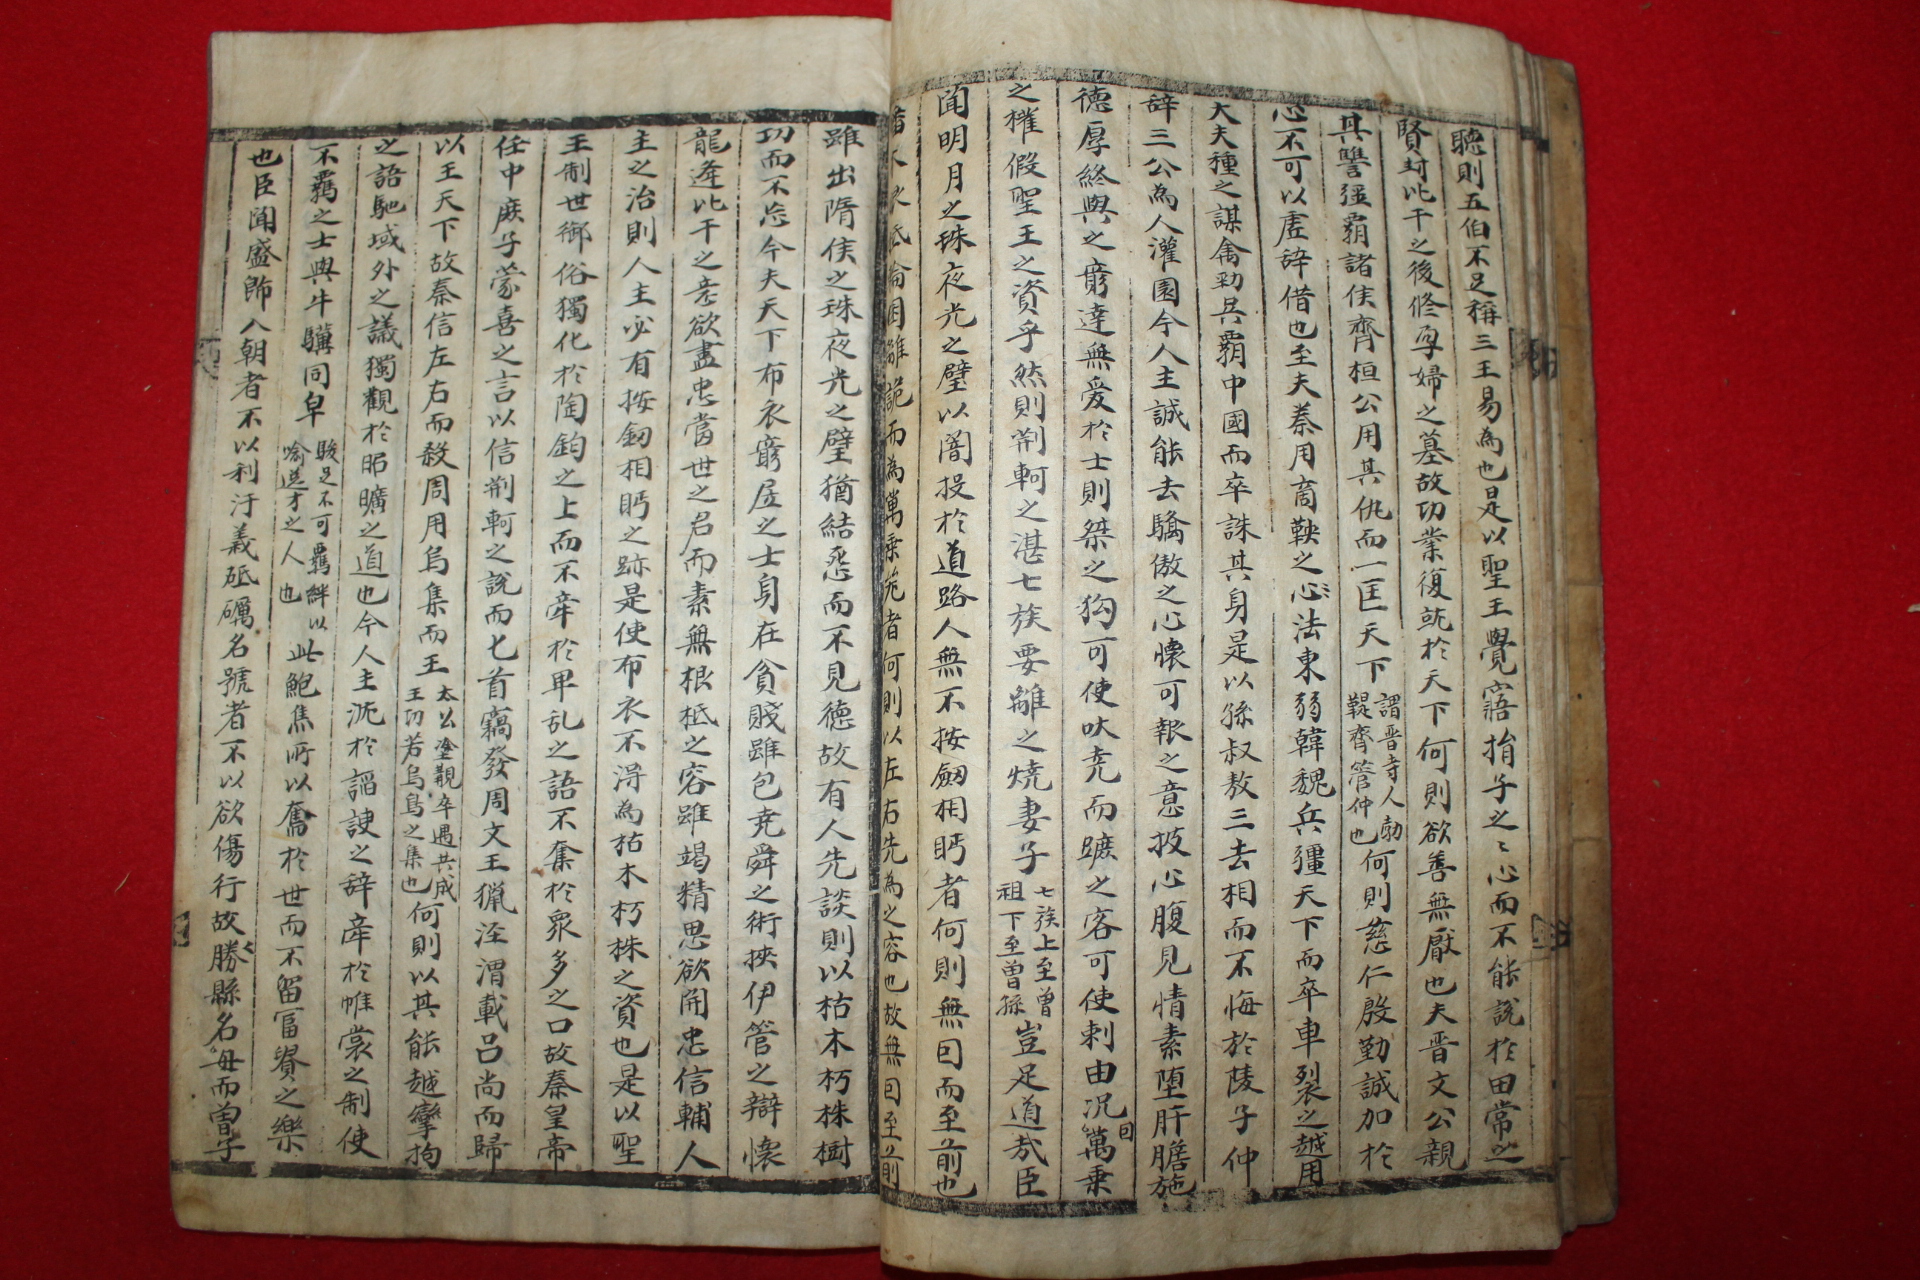 聽則五伯不足稱三王易為也是以聖王覺寤捐子之〻心而不能說於田常之
賢封比干之後修孕婦之墓故功業復就於天下何則欲善無厭也夫晋文公親
其讐彊覇諸侯齊桓公用其仇而一匡天下謂晋寺人勃鞮齊管仲也何則慈仁殷勤誠加於
心不可以虗辞借也至夫秦用商鞅之心法東弱韓魏兵彊天下而卒車裂之越用
大夫種之謀禽勁兵覇中國而卒誅其身是以孫叔敖三去相而不悔於陵子仲
辞三公為人灌園今人主誠能去驕傲之心懷可報之意披心腹見情素堕肝膽施
德厚終與之窮達無爱於士則桀之狗可使吠尭而蹠之客可使刺由况萬乗
之權假聖王之資乎然則荆軻之湛七族要離之燒妻子七族上至曽祖下至曽孫豈足道㢤臣
聞明月之珠夜光之璧以闇投於道路人無不按劔相眄者何則無因而至前也
木根柢輪囷離詭而為萬乗器者何則以左右先為之容也故無因至前
雖出隋侯之珠夜光之璧猶結怨而不見德故有人先談則以枯木朽株樹
功而不忘今夫天下布衣窮居之士身在貧賤雖包尭舜之術挾伊管之辯懷
龍逄比干之意欲盡忠當世之君而素無根柢之容雖竭精思欲開忠信輔人
主之治則人主必有按劔相眄之跡是使布衣不得為枯木朽株之資也是以聖
王制世御俗獨化於陶鈞之上而不牽於卑乱之語不奪於衆多之口故秦皇帝
任中庶子蒙喜之言以信荆軻之說而匕首竊發周文王獵涇渭載吕尚而歸
以王天下故秦信左右而殺周用烏集而王太公塗覯卒遇共成王功若烏鳥之集也何則以其能越攣拘
之語馳域外之議獨觀於昭曠之道也今人主沉於謟諛之辞牽於帷裳之制使
不羈之士與牛驥同皁駿足不可羈絆以喻逆才之人也此鮑焦所以奮於世而不留冨貴之樂
也臣聞盛飾入朝者不以利汙義砥礪名號者不以欲傷行故勝縣名母而曽子